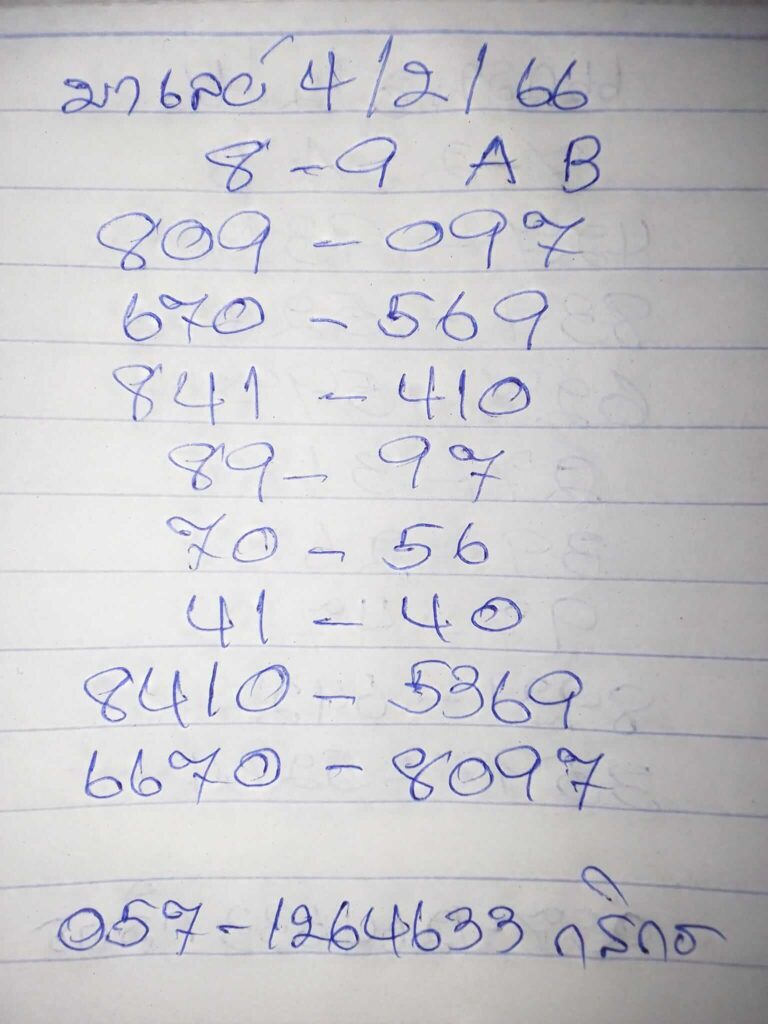 มาเลย์ 4/2/66
8-9 A B
809 - 097
670 - 569
841 - 410
89 - 97
70 - 56
41 - 40
8410 - 5369
6670 - 8097
057-1264633 กสิกร